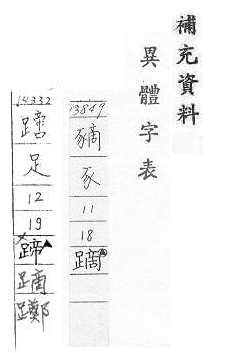 補充資料
異體字表
13849
豴
豕
11
18
蹢
14332
足
12
19
蹄
蹢
躑